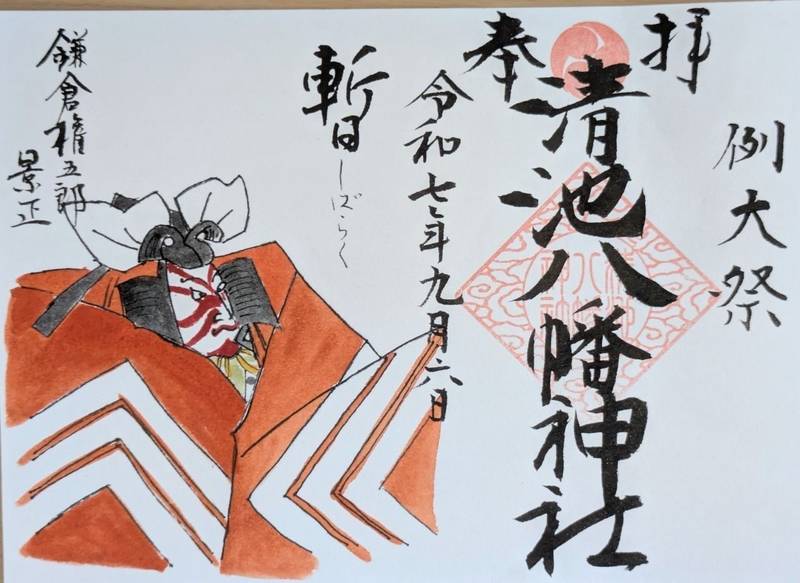 例大祭
奉拝
清池八幡神社
令和七年九月六日
暫
しばらく
鎌倉権五郎
景正